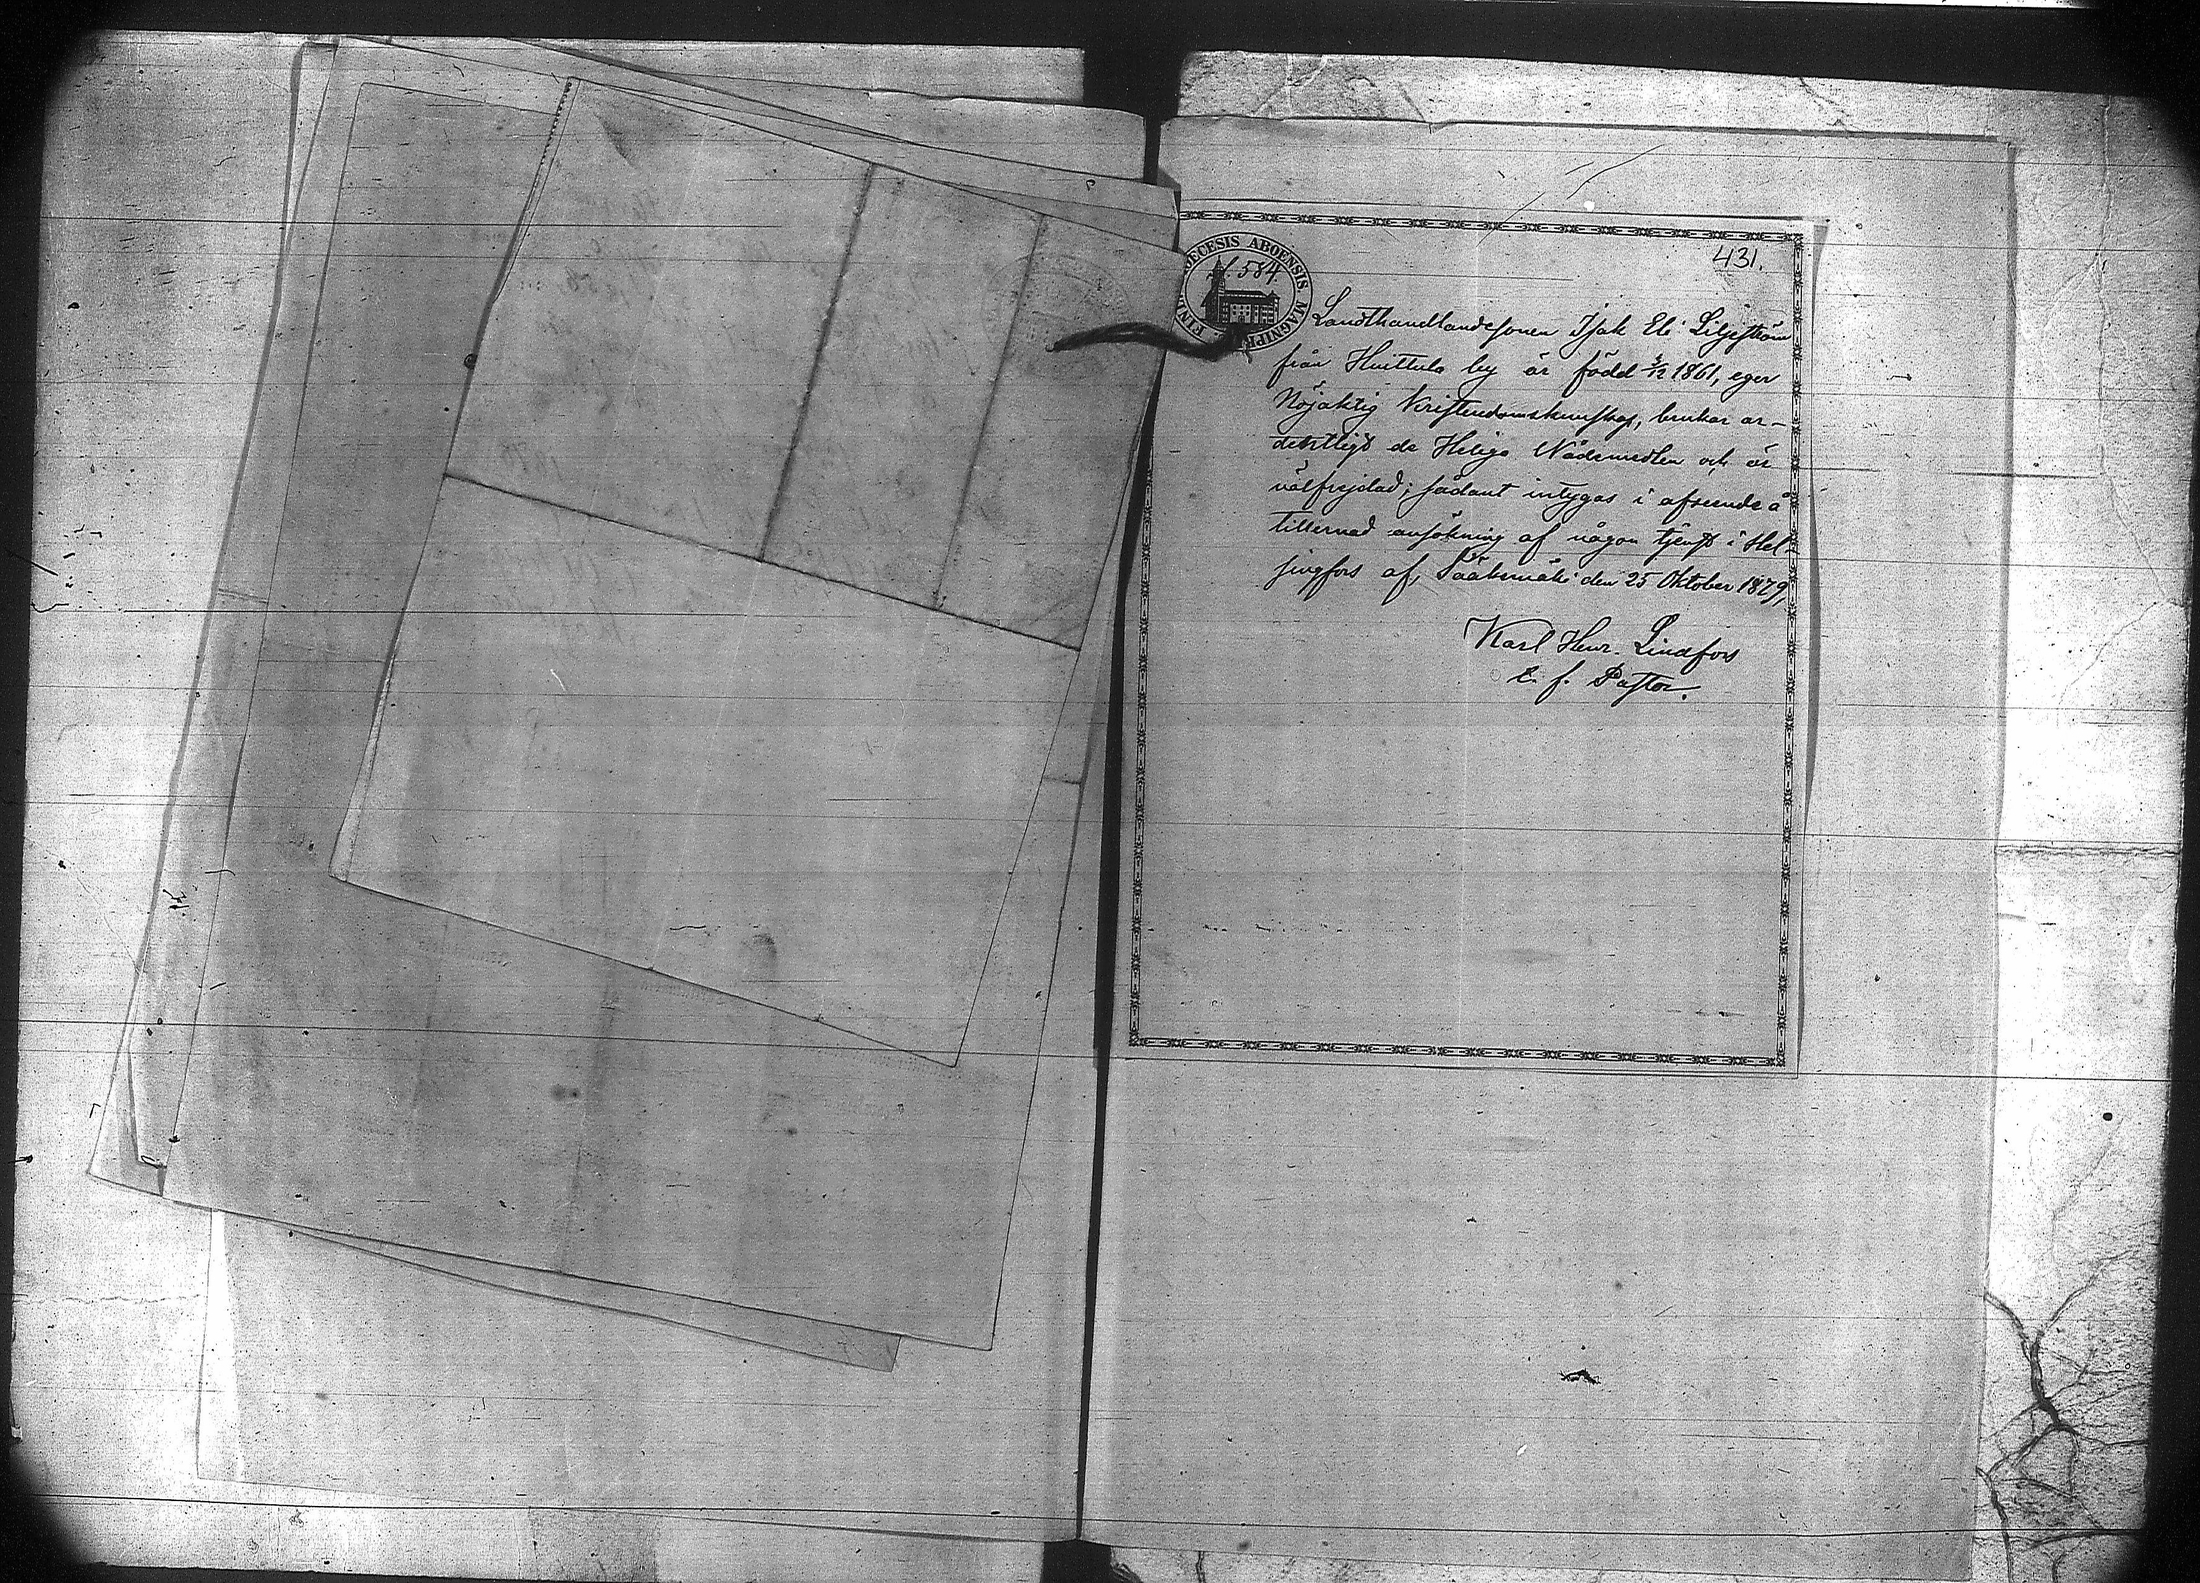 431.
DIŒCESIS ABOENSIS MAGNI PR FIN
f. 584.
Landthandlandesonen Isak Eli Liljeström
från Huittula by är född 5/12 1861, eger
Nöjaktig Kristendomskunskap, brukar or-
dentligt de Heliga Nådemedlen och är
välfrejdad; sådant intygas i afseende å
tillernad ansökning af någon tjenst i Hel-
singfors af, Sääksmäki den 25 Oktober 1879,
Karl Henr. Lindfors
E. f. Pastor.